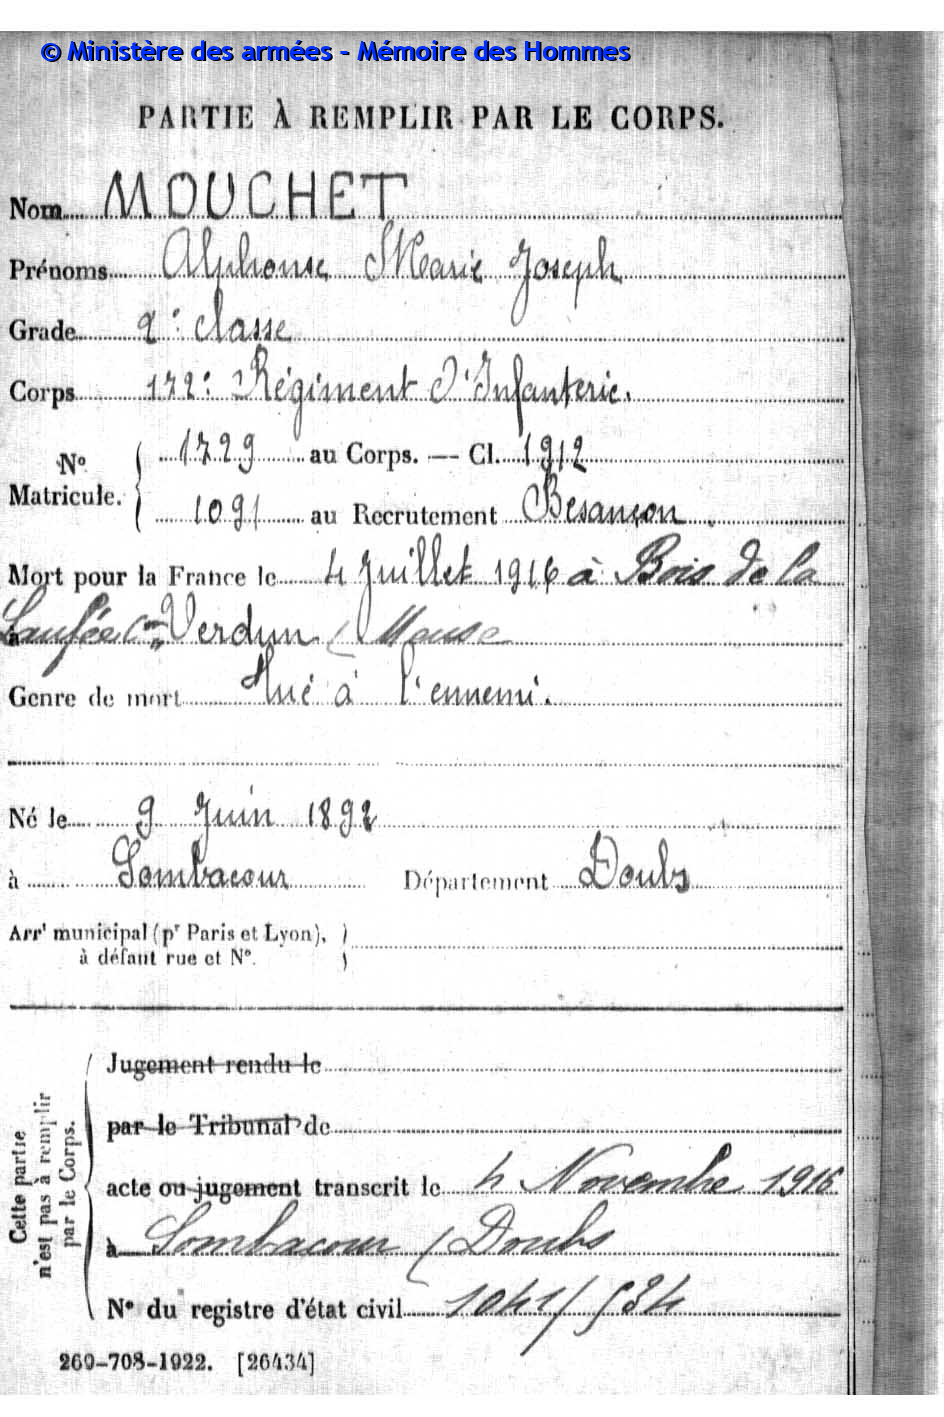 © Ministère des armées - Mémoire des Hommes
PARTIE À REMPLIR PAR LE CORPS.
Nom MOUCHET
Prénoms Alphonse Marie Joseph
Grade 2e classe
Corps 172e Régiment d'Infanterie.
No Matricule. 1729 au Corps. — Cl. 1912
1091 au Recrutement Besançon
Mort pour la France le 4 Juillet 1916 à Bois de la
à Laufée Cne Verdun (Meuse
Genre de mort Tué à l'ennemi.
Né le 9 Juin 1892
à Sombacour Département Doubs
Arrt municipal (pr Paris et Lyon),
à défaut rue et No.
Cette partie n'est pas à remplir par le Corps.
Jugement rendu le
par le Tribunal de
acte ou jugement transcrit le 4 Novembre 1916
à Sombacour (Doubs
No du registre d'état civil 1041/534
269-708-1922. [26434]